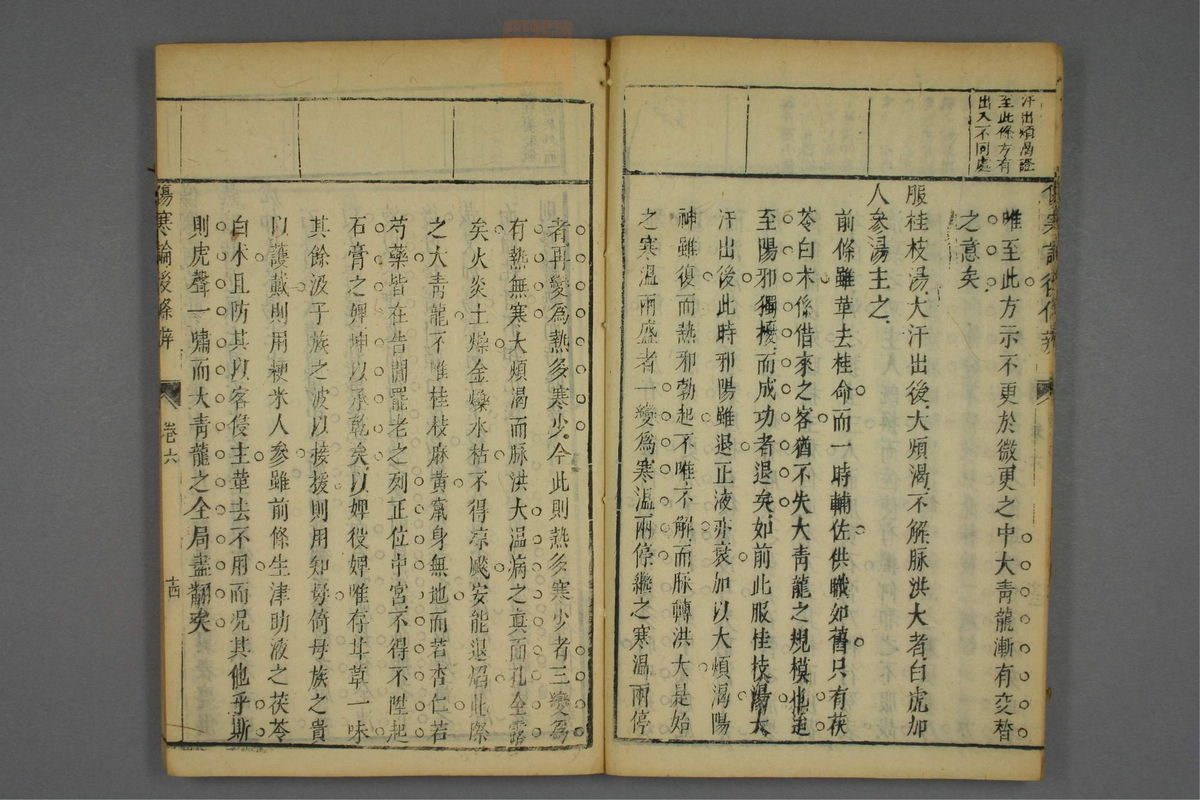 汗出煩渴證
至此條方有
出入不同處
唯至此方示不更於微更之中大青龍漸有交替
之意矣
服桂枝湯大汗出後大煩渴不解脉洪大者白虎加
人參湯主之
前條雖革去桂命而一時輔佐供職如舊只有茯
苓白术係借來之客猶不失大青龍之規模也迨
至陽邪獨擾而成功者退矣如前此服桂技湯大
汗出後此時邪陽雖退正液亦衰加以大煩渴陽
神雖復而熱邪勃起不唯不解而脉轉洪大是始
之寒温兩盛者一變爲寒温兩停繼之寒温兩停
者再變爲熱多寒少今此則熱多寒少者三變爲
有熱無寒大煩渴而脉洪大温病之真面孔全露
矣火炎土燥金爍水枯不得凉颷安能退熖此際
之大青龍不唯桂枝麻黄竄身無地而若杏仁若
芍藥皆在告閒罷老之列正位中宮不得不陞起
石膏之婢坤以承乾矣以婢役婢唯存甘草一味
其餘汲于族之波以接援則用知毋倚母族之貴
以護蔵則用粳米人參雖前條生津助液之茯苓
白术且防其以客侵主革去不用而况其他乎斯
則虎聲一嘯而大青龍之全局盡翻矣
傷寒論後條辨
卷六
十四